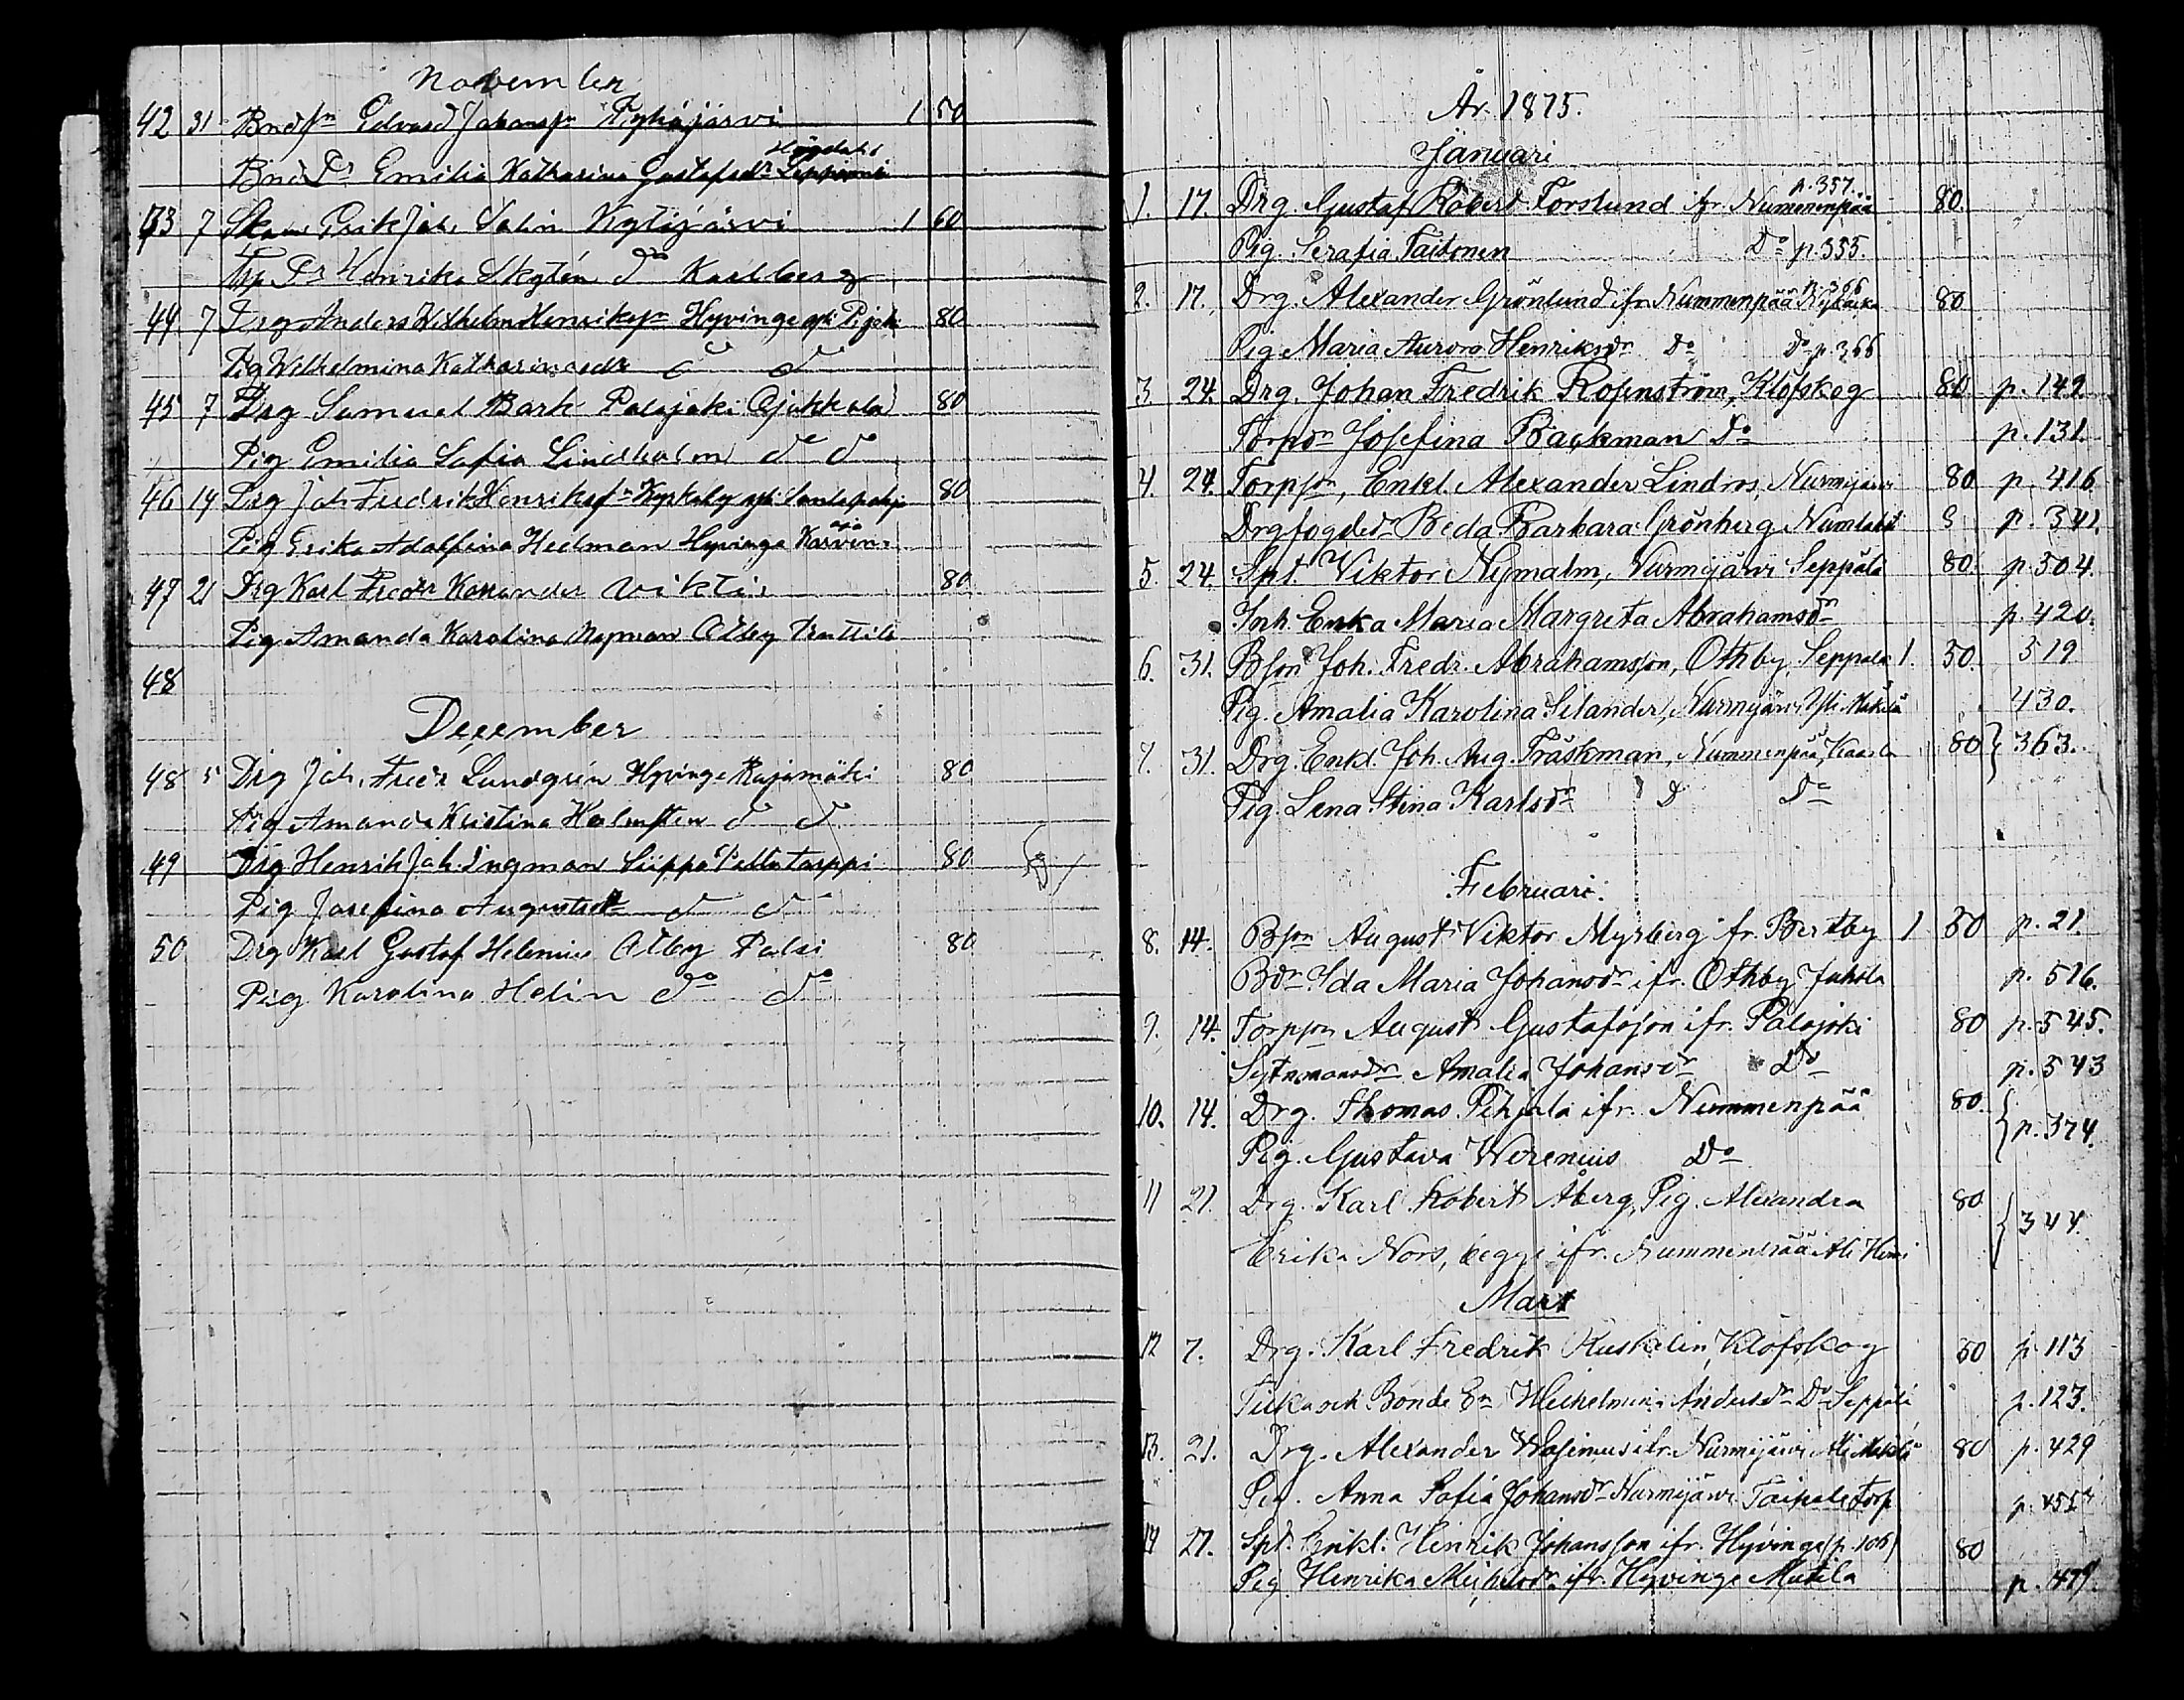 November
42 31 Bndsn Edvard Johanssn Kytäjärvi 1 50
Högdahl
Bnd Dr Emilia Katharina Gustafsdr
43 7 Erik Joh. Salin Kytäjärvi 1 60
Trp Dr Henrika Skytén do Karlberg
44 7 Drg Anders Wilhelm Henrikssn Hyvinge 80
Pig Wilhelmina Katharinasdr do do
45 7 Drg Samuel Bark Palojoki Ojakkala 80
Pig Emilia Sofia Lindholm do do
46 14 Drg Joh Fredrik Henrikssn 80
Pig Erika Adolfina Hedman Hyvinge
47 21 Drg Karl Fredr Viktis 80
Pig Amanda Karolina Nyman Otby
48
December
48 5 Drg Joh. Fredr Lundgrén Hyvinge Rajamäki 80
Pig Amanda Kristina Holmsten do do
49 Drg Henrik Joh. Ingman Siippo 80
Pig Josefina Augustsdr do do
50 Drg Karl Gustaf Helenius Otby Palsi 80
Pig Karolina Helin do do
År 1875.
Januari
p. 357.
1. 17. Drg. Gustaf Robert Forslund ifr. Nummenpää 80.
Pig. Serafia Taitonen Do p. 355.
p. 366
2. 17. Drg. Alexander Grönlund ifr. Nummenpää 80
Pig. Maria Aurora Henriksdr Do Do p. 366
3. 24. Drg. Johan Fredrik Rosenström, Klöfskog 80 p. 142.
Torpdr Josefina Backman Do p. 131.
4. 24. Torpson, Enkl. Alexander Lindros, Nurmijärvi 80 p. 416
Drgfogdedr Beda Barbara Grönberg p. 341.
5. 24. Spt. Viktor Nymalm, Nurmijärvi Seppälä 80. p. 504.
Inh. Enka Maria Margreta Abrahamsdr p. 420.
6. 31. Bson Joh. Fredr. Abrahamsson, Othby, Seppälä 1. 50. 519
Pig. Amalia Karolina Silander, Nurmijärvi Yli Mäkilä 430.
7. 31. Drg. Enkl. Joh. Aug. Träskman, Nummenpää, 80 } 363.
Pig. Lena Stina Karlsdr Do Do
Februari.
8. 14. Bson August Viktor Myrberg ifr. Bertby 1 80 p. 21.
Bdr Ida Maria Johansdr ifr. Othby Juhola p. 516.
9. 14. Torpson August Gustafsson ifr. Palojoki 80 p. 545.
Sytnmansdr Amalia Johansdr Do p. 543
10. 14. Drg. Thomas Pihjala ifr. Nummenpää 80. { p. 374.
Pig. Gustava Werenius Do
11 21. Drg. Karl Robert Åberg, Pig. Alexandra 80 { 344.
Erika Nors, begge ifr. Nummenpää Ali
Mart
12 7. Drg. Karl Fredrik Ruskelin, Klöfskog 80 p. 113
Bonde Wilhelmina Andersdr Do Seppälä p. 123.
13. 21. Drg. Alexander Wasenius ifr. Nurmijärvi Ali Mäkilä 80 p. 429
Pig. Anna Sofia Johansdr Nurmijärvi Taipale torp
14 27. Spt. Enkl. Henrik Johansson ifr. Hyvinge (p. 106) 80
Pig Henrika Michelsdr ifr. Hyvinge Mutila p. 479.